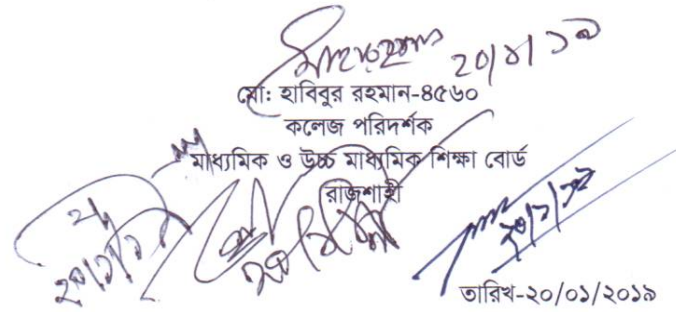 ২০/১/১৯
মো: হাবিবুর রহমান-৪৫৬০
কলেজ পরিদর্শক
মাধ্যমিক ও উচ্চ মাধ্যমিক শিক্ষা বোর্ড
রাজশাহী
২০/১/১৯
তারিখ-২০/০১/২০১৯